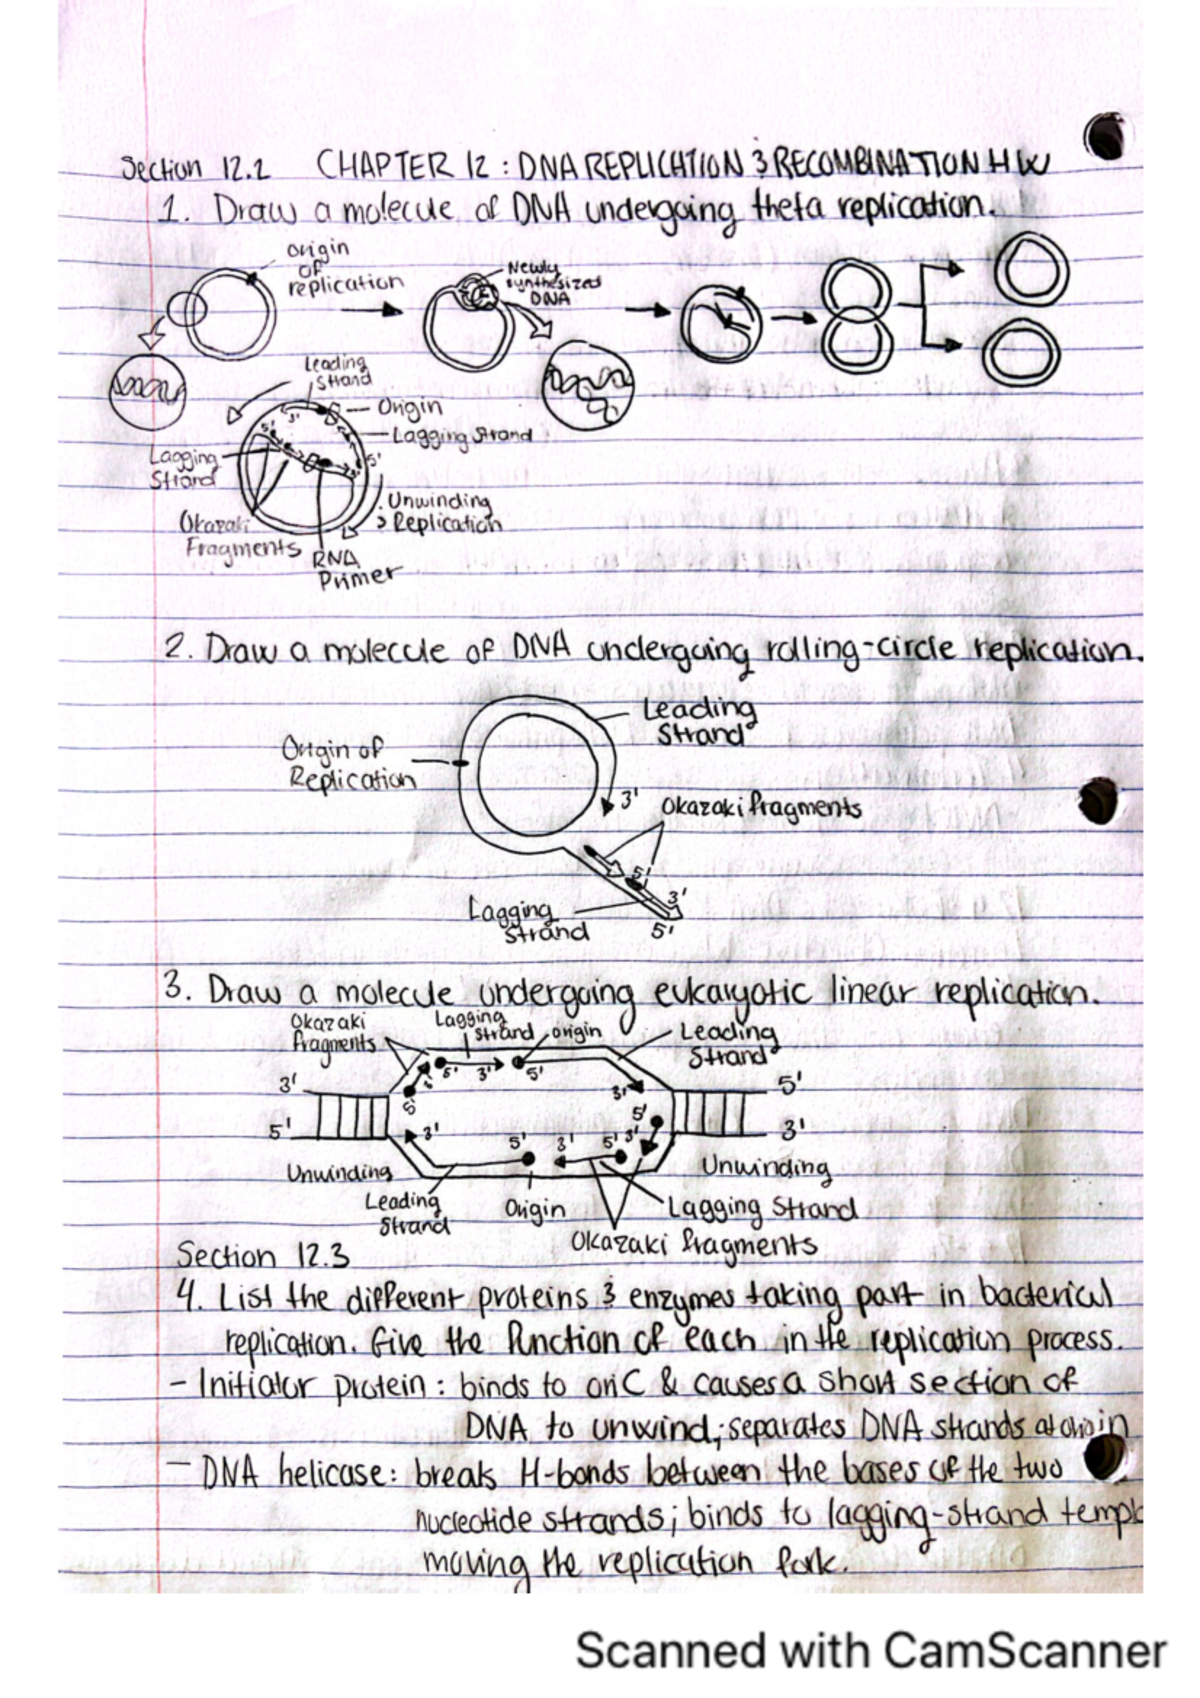 Section 12.2 CHAPTER 12 : DNA REPLICATION & RECOMBINATION HW
1. Draw a molecule of DNA undergoing theta replication.
origin
of
replication
Newly
synthesized
DNA
Leading
Strand
Origin
Lagging Strand
3'
5'
5'
Lagging
Strand
Unwinding
& Replication
Okazaki
Fragments
RNA
Primer
2. Draw a molecule of DNA undergoing rolling-circle replication.
Leading
Strand
Origin of
Replication
3'
Okazaki fragments
5'
3'
Lagging
Strand
5'
3. Draw a molecule undergoing eukaryotic linear replication.
Okazaki
fragments
Lagging
Strand
origin
Leading
Strand
5' 3' 5'
3' 3' 5'
5' 5'
5' 3' 5' 3' 5' 3' 3'
Unwinding Unwinding
Leading
Strand
Origin
Lagging Strand
Okazaki fragments
Section 12.3
4. List the different proteins & enzymes taking part in bacterical
replication. Give the function of each in the replication process.
- Initiator protein : binds to oriC & causes a short section of
DNA to unwind; separates DNA strands at
- DNA helicase: breaks H-bonds between the bases of the two
nucleotide strands; binds to lagging-strand templ
moving the replication fork.
Scanned with CamScanner